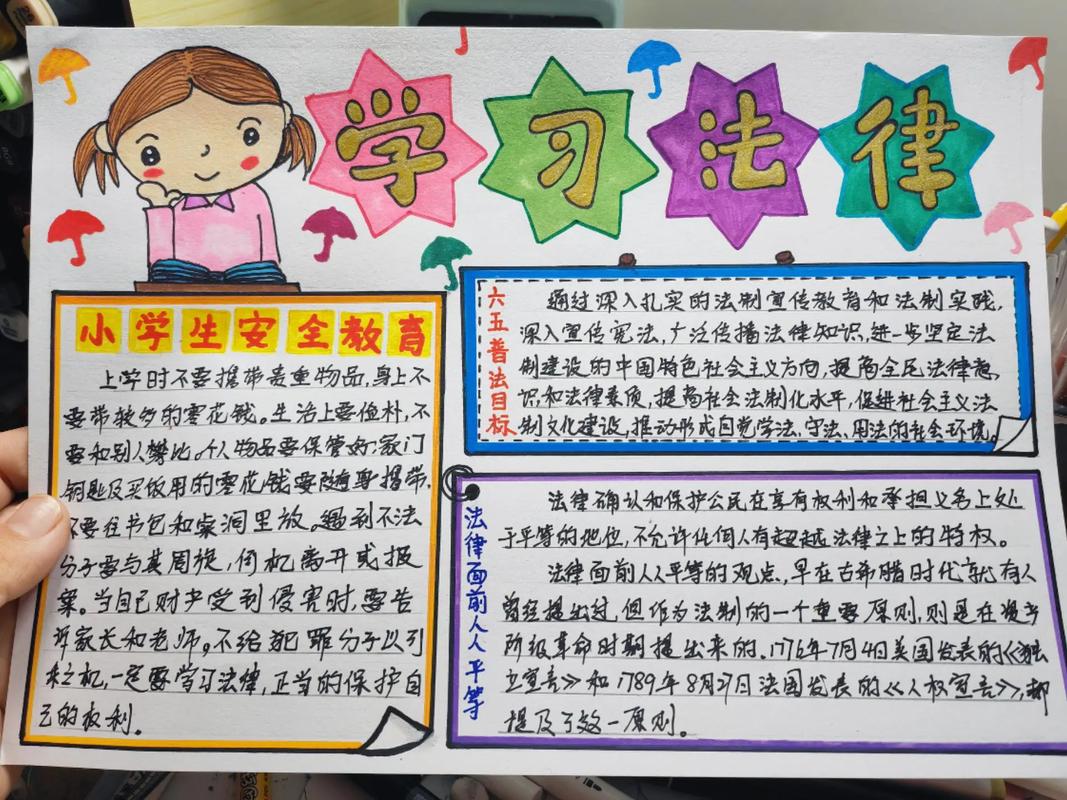 学习法律
小学生安全教育
上学时不要携带贵重物品,身上不
要带较多的零花钱。生活上要俭朴,不
要和别人攀比。个人物品要保管好;家门
钥匙及买饭用的零花钱要随身携带.
不要在书包和桌洞里放。遇到不法
分子要与其周旋,伺机离开或报
案。当自己财产受到侵害时,要告
诉家长和老师。不给犯罪分子以可
乘之机,一定要学习法律,正当的保护自
己的权利.
六五普法目标
通过深入扎实的法制宣传教育和法制实践,
深入宣传宪法,广泛传播法律知识,进一步坚定法
制建设的中国特色社会主义方向,提高全民法律意
识和法律素质,提高社会法制化水平,促进社会主义法
制文化建设,推动形成自觉学法、守法、用法的社会环境。
法律面前人人平等
法律确认和保护公民在享有权利和承担义务上处
于平等的地位,不允许任何人有超越法律之上的特权。
法律面前人人平等的观点,早在古希腊时代就有人
曾经提出过,但作为法制的一个重要原则,则是在资产
阶级革命时期提出来的.1776年7月4日美国发表的《独
立宣言》和1789年8月27日法国发表的《人权宣言》,都
提及了这一原则。